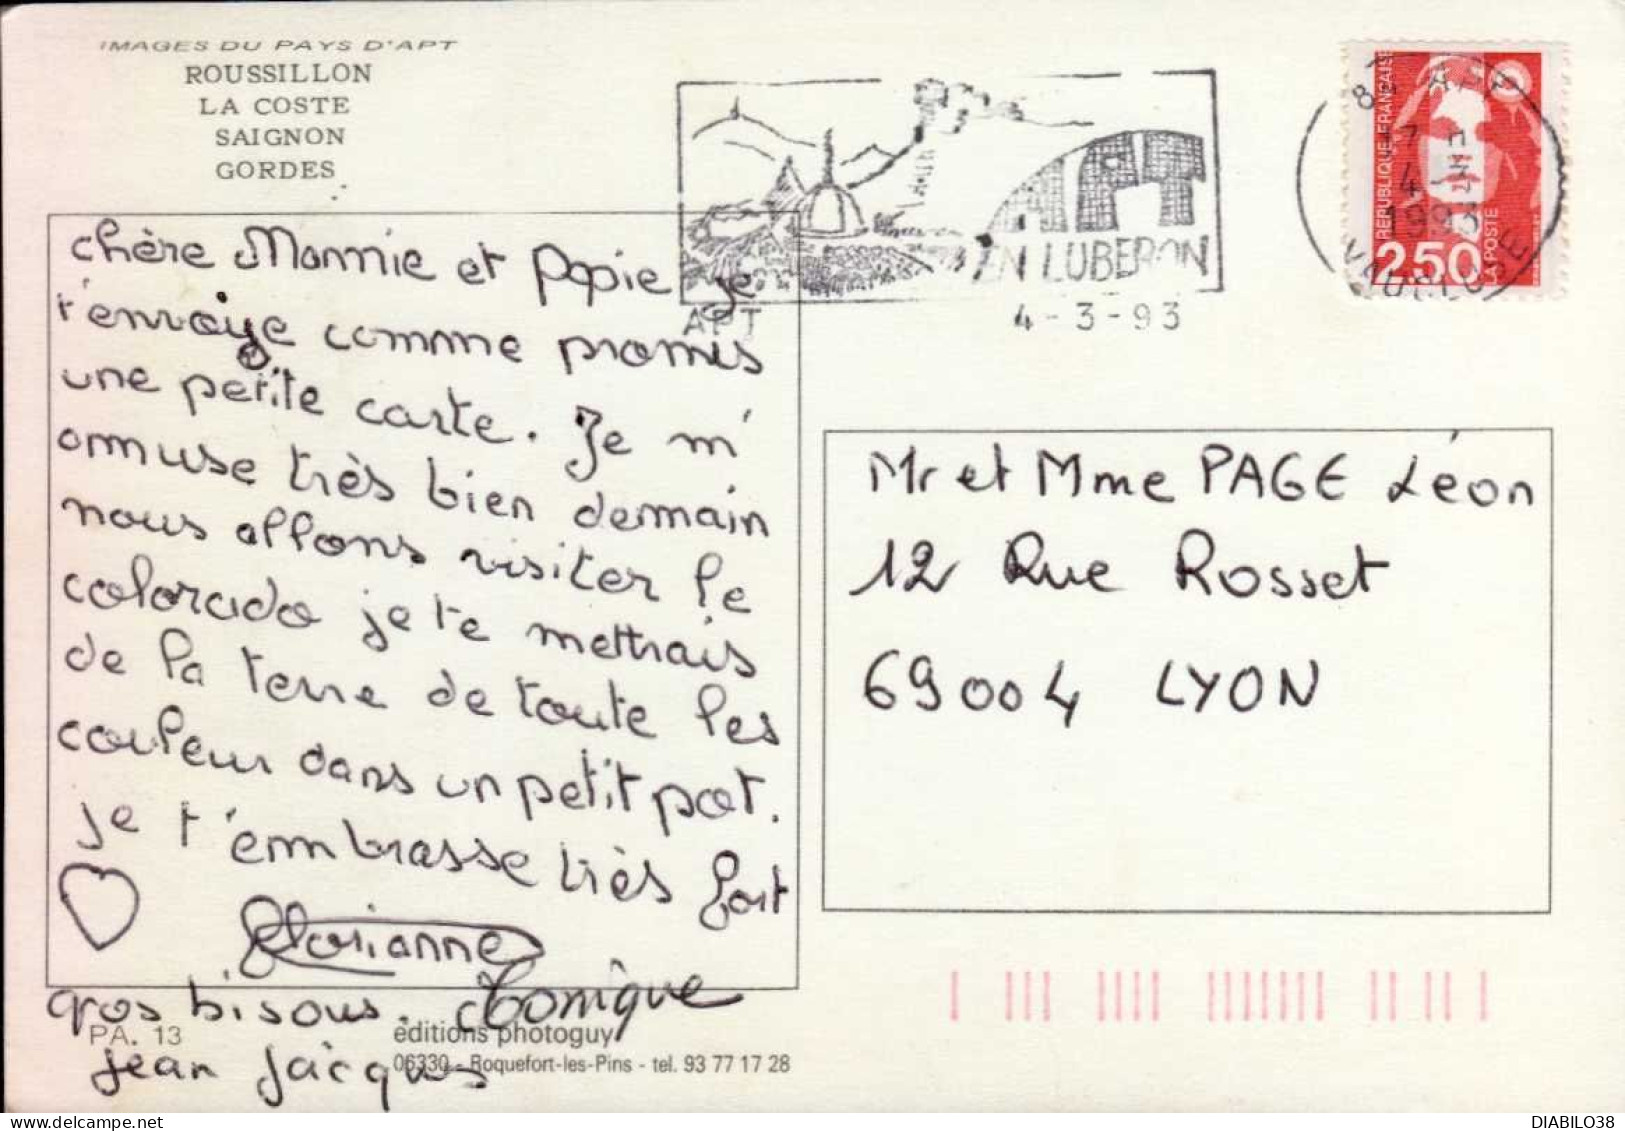 IMAGES DU PAYS D'APT
ROUSSILLON
LA COSTE
SAIGNON
GORDES
EN LUBERON
APT
4-3-93
84 APT
17 H
4 - 3
1993
VAUCLUSE
REPUBLIQUE FRANÇAISE
2,50
LA POSTE
chère Mamie et Papie je
t'envoye comme promis
une petite carte. Je m'
amuse très bien demain
nous allons visiter le
colorado je te mettrais
de la terre de toute les
couleur dans un petit pot.
je t'embrasse très fort
Florianne
gros bisous. Monique
Jean Jacques
Mr et Mme PAGE Léon
12 Rue Rosset
69004 LYON
PA. 13
éditions photoguy
06330 - Roquefort-les-Pins - tel. 93 77 17 28
DIABILO38